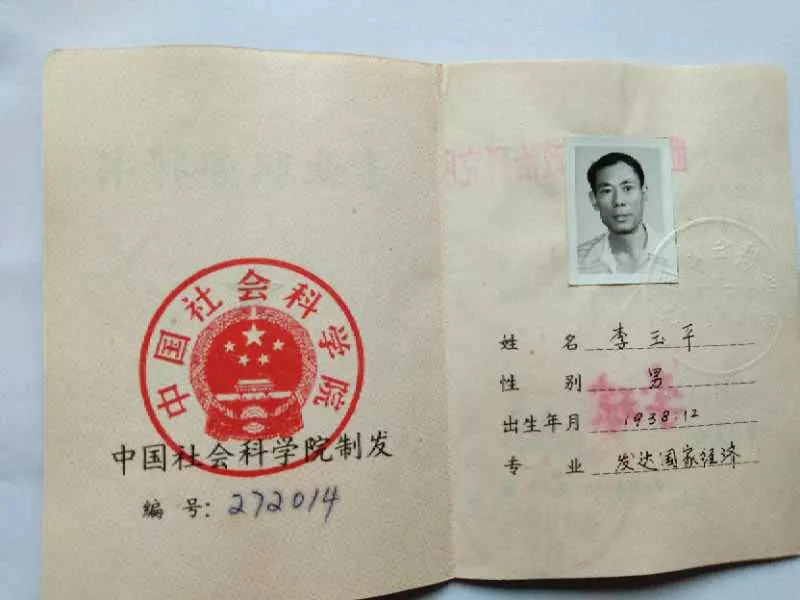 中国社会科学院
中国社会科学院制发
编 号：272014
姓 名 李玉平
性 别 男
出生年月 1938.12
专 业 发达国家经济